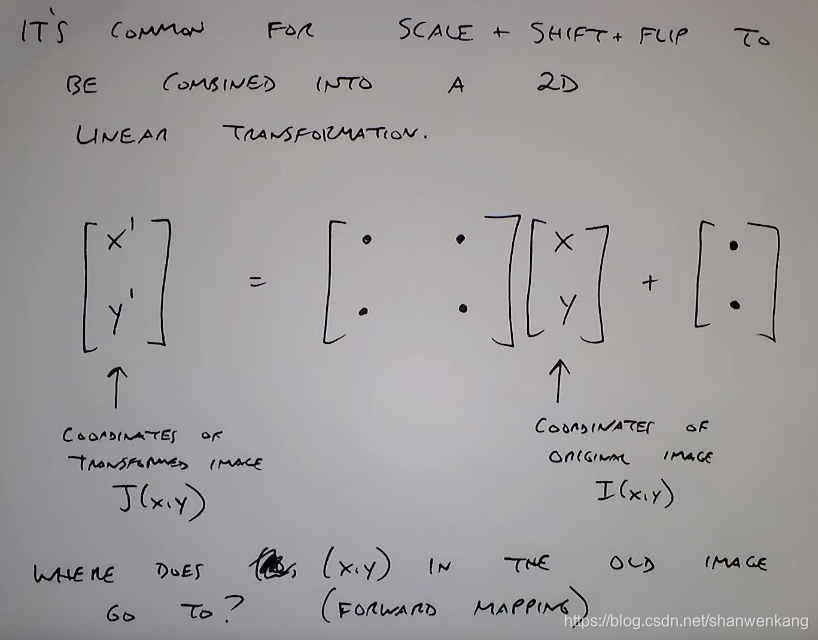 IT'S COMMON FOR SCALE + SHIFT + FLIP TO
BE COMBINED INTO A 2D
LINEAR TRANSFORMATION.
[x' y'] = [• • • •][x y] + [• •]
COORDINATES OF
TRANSFORMED IMAGE
J(x,y)
COORDINATES OF
ORIGINAL IMAGE
I(x,y)
WHERE DOES (x,y) IN THE OLD IMAGE
GO TO? (FORWARD MAPPING)
https://blog.csdn.net/shanwenkang